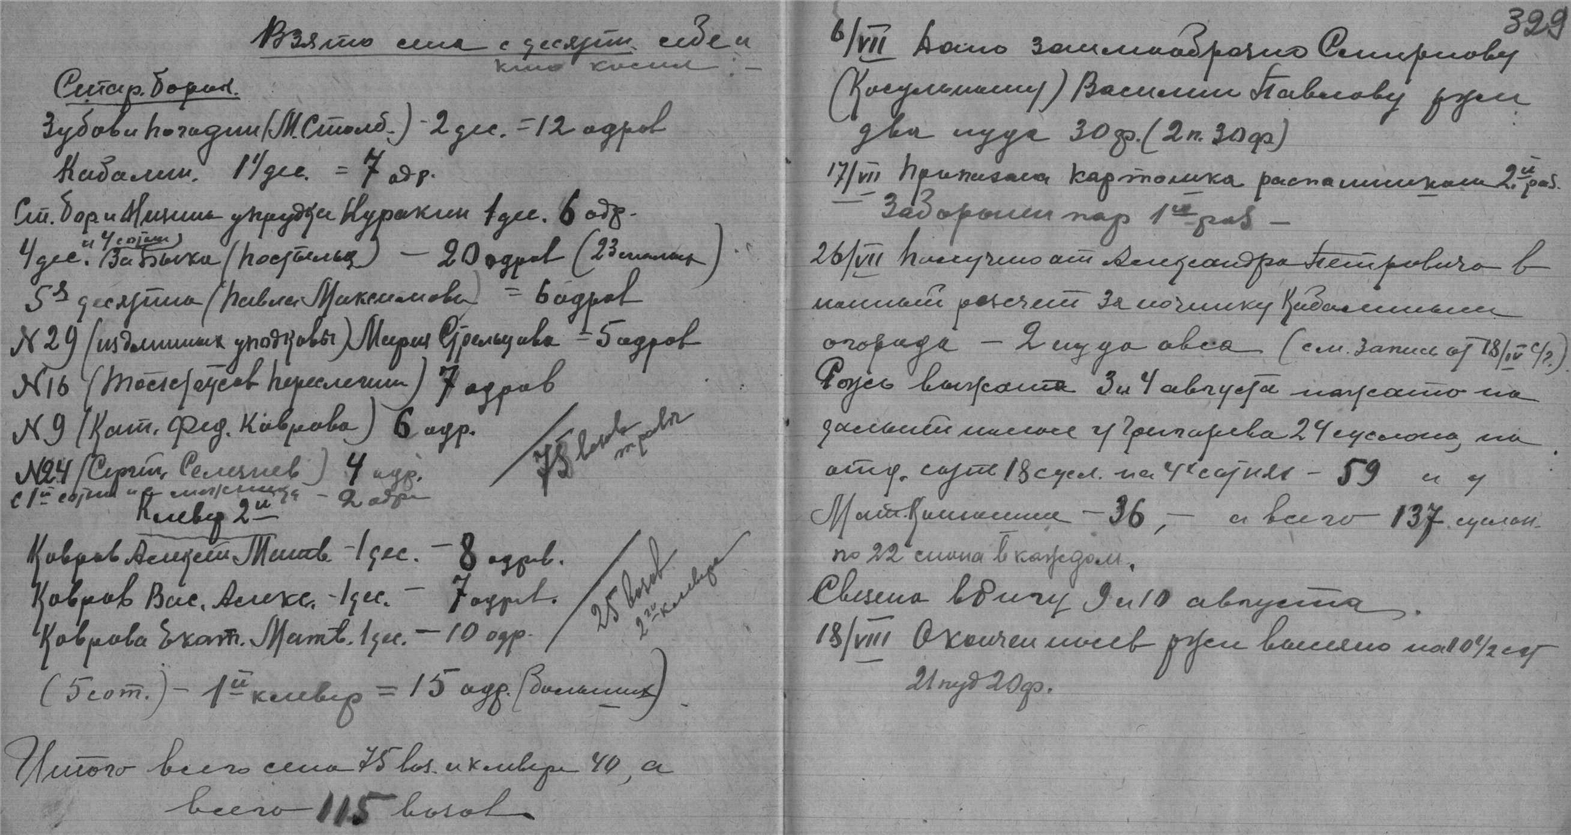 Взято сена с десятин. себе и
кто косил : –
Стар. борин.
Зубов и Погодин (М. Столб.) – 2 дес. = 12 одров
Кабалин. 1 1/ дес. = 7 одр.
Ст. бор и Низины у прудка Куракин 1 дес. 6 одр.
и 4 сотни
4 дес. – 20 одров (23
5я десятина (Павла Максимова) = 6 одров
№ 29 (Мария Стрельцова – 5 одров
№ 16 (Переслегин) 7 одров
№ 9 (Кат. Фед. Коврова) 6 одр.
75 возов травы
№ 24 (Сергей Селезнев) 4 одр.
с 1й сотни – 2 одра
Клевер 2й
Ковров Алексей Матв. – 1 дес. – 8 одров.
Ковров Вас. Алекс. – 1 дес. – 7 одров.
25 возов
2го клевера
Коврова Екат. Матв. 1 дес. – 10 одр.
(5 сот.) – 1й клевер = 15 одр. (больших)
Итого всего сена 75 воз. и клевера 40, а
всего 115 возов
329
6/VII Дано заимообразно Смирнову
Василию Павлову ржи
два пуда 30 ф. (2 п. 30 ф)
17/VII картошка распашником 2й раз.
Заборонен пар 1й раз –
26/VII Получено от Александра Петровича в
полный рассчет за починку
огорода – 2 пуда овса (см. запись от 18/IV с/г.)
Рожь выжата 3 и 4 августа нажато на
дальней полосе у Григорьева 24 суслона, на
отд. сотне 18 сусл. на 4х сотнях – 59 и у
– 36, – а всего 137 суслон.
по 22 снопа в каждом.
Свезена в ригу 9 и 10 августа.
18/VIII Окончен посев ржи высеяно на 10 1/2 сот
21 пуд 20 ф.